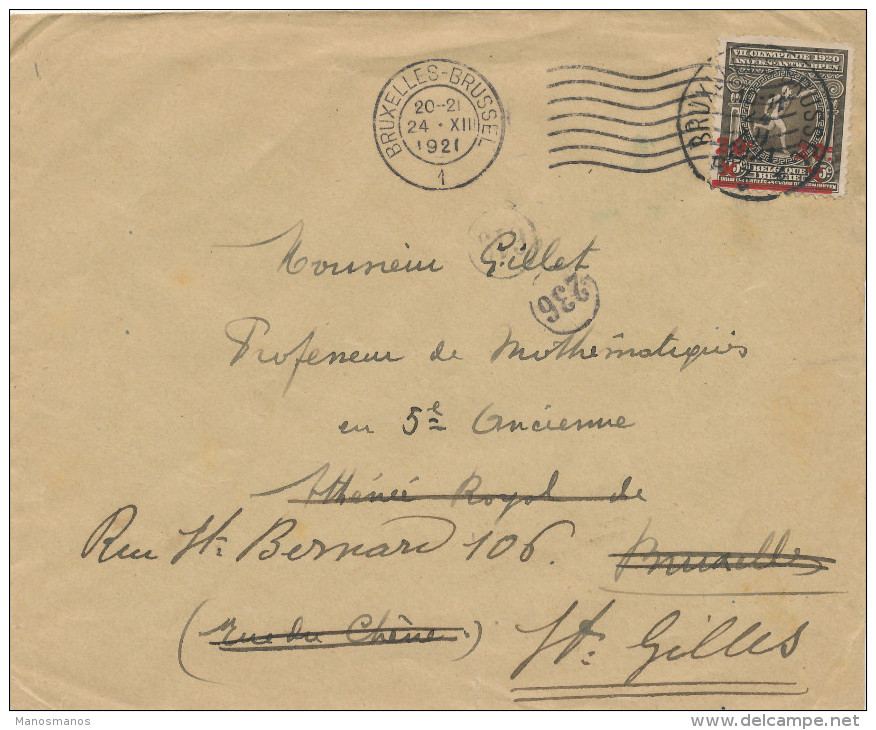 BRUXELLES-BRUSSEL
20-21
24 · XII
1921
1
VII OLYMPIADE 1920
ANVERS-ANTWERPEN
20c 20c
15c BELGIQUE 15c
BELGIË
Monsieur Gillet
236
Professeur de Mathématiques
en 5e Ancienne
Athénée Royal de
Rue St. Bernard 106.
Bruxelles
(rue du Chêne)
St. Gilles
Manosmanos
delcampe.net